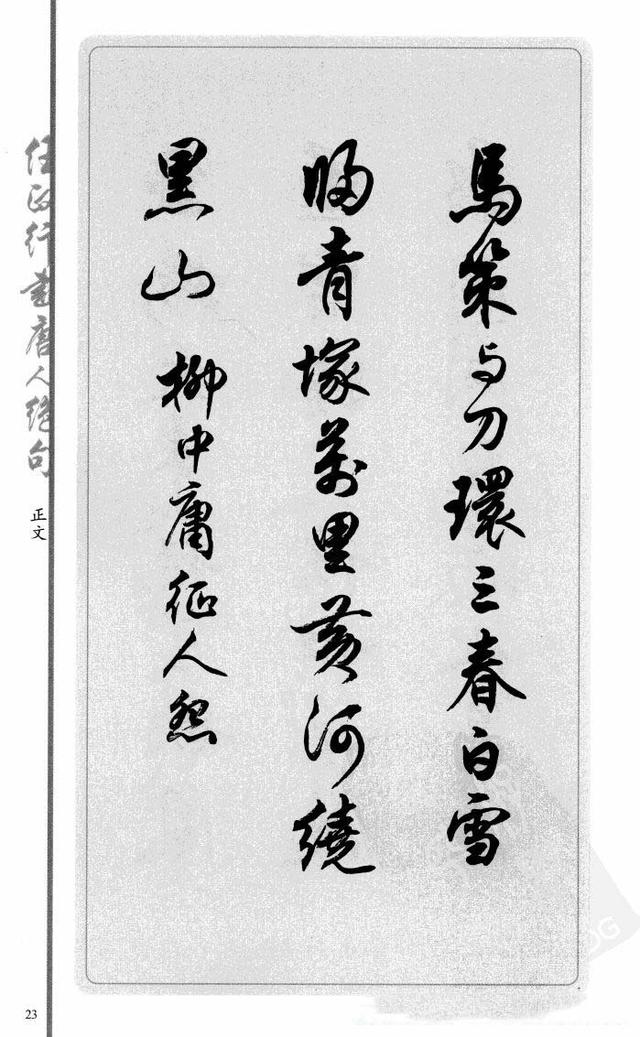 馬策与刀環三春白雪
歸青塚萬里黃河繞
黑山
柳中庸征人怨
任政行書唐人绝句
正文
23